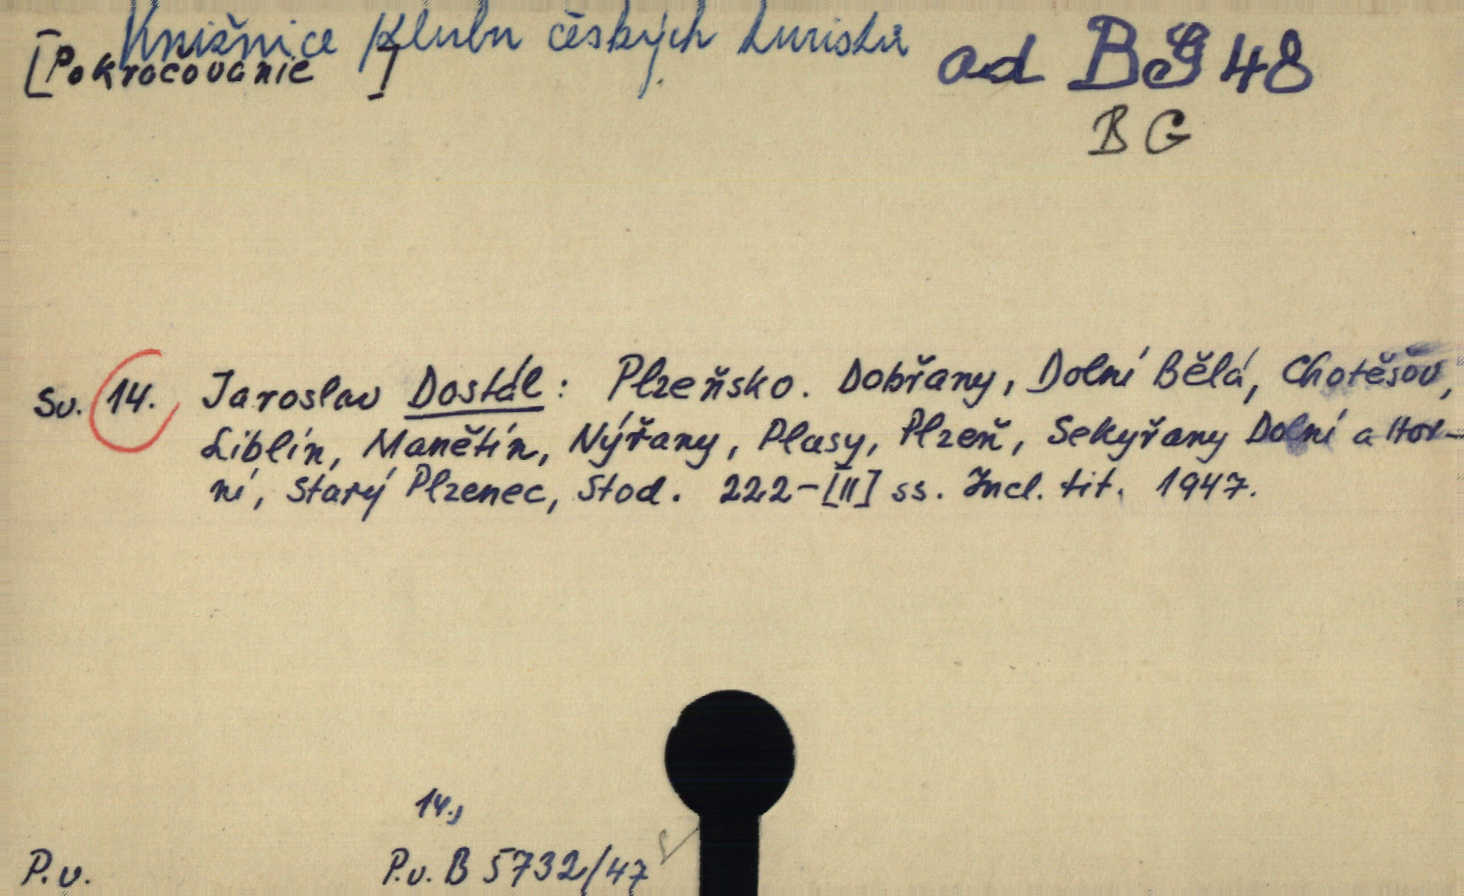 Knižnice Klubu českých turistů
[Pokračovanie]
ad BG 48
BG
Sv. 14. Jaroslav Dostál: Plzeňsko. Dobřany, Dolní Bělá, Chotěšov,
Liblín, Manětín, Nýřany, Plasy, Plzeň, Sekyřany Dolní a Hor-
ní, Starý Plzenec, Stod. 222-[II] ss. Incl. tit. 1947.
14.,
P.v. P.v. B 5732/47